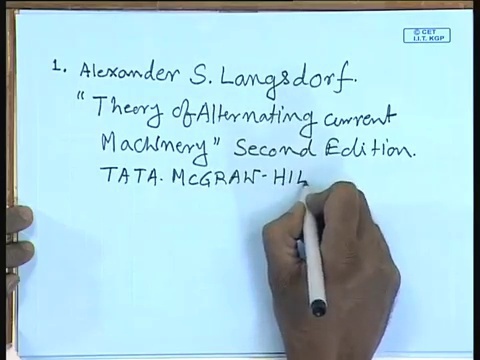 © CET
I.I.T. KGP
1. Alexander S. Langsdorf.
"Theory of Alternating current
Machinery" Second Edition.
TATA. McGRAW-HIL